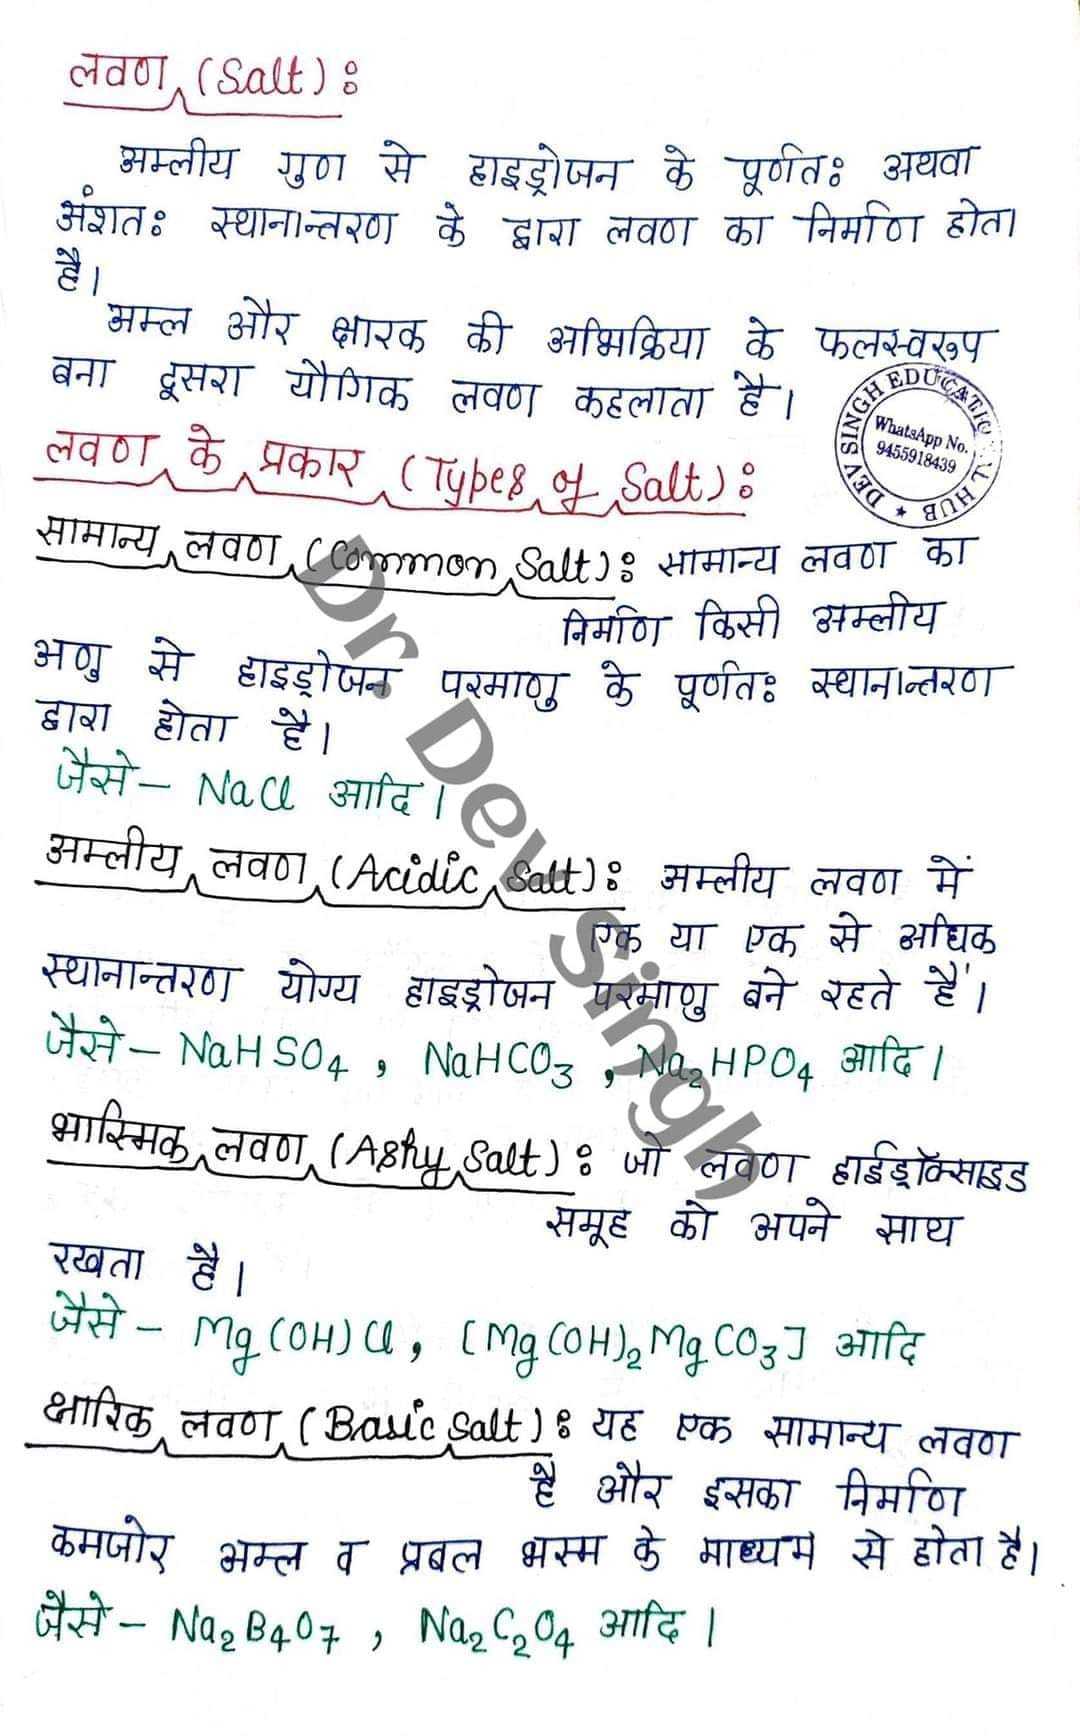 लवण (Salt) :
अम्लीय गुण से हाइड्रोजन के पूर्णतः अथवा
अंशतः स्थानान्तरण के द्वारा लवण का निर्माण होता
है।
अम्ल और क्षारक की अभिक्रिया के फलस्वरूप
बना दूसरा यौगिक लवण कहलाता है।
DEV SINGH EDUCATIONAL HUB
WhatsApp No.
9455918439
लवण के प्रकार (Types of Salt) :
सामान्य लवण (Common Salt) : सामान्य लवण का
निर्माण किसी अम्लीय
अणु से हाइड्रोजन परमाणु के पूर्णतः स्थानान्तरण
द्वारा होता है।
जैसे – NaCl आदि।
अम्लीय लवण (Acidic Salt) : अम्लीय लवण में
एक या एक से अधिक
स्थानान्तरण योग्य हाइड्रोजन परमाणु बने रहते हैं।
जैसे – NaHSO4 , NaHCO3 , Na2HPO4 आदि।
भास्मिक लवण (Ashy Salt) : जो लवण हाईड्रॉक्साइड
समूह को अपने साथ
रखता है।
जैसे – Mg(OH)Cl, [Mg(OH)2MgCO3] आदि
क्षारिक लवण (Basic Salt) : यह एक सामान्य लवण
है और इसका निर्माण
कमजोर अम्ल व प्रबल भस्म के माध्यम से होता है।
जैसे – Na2B4O7 , Na2C2O4 आदि।
Dr. Dev Singh